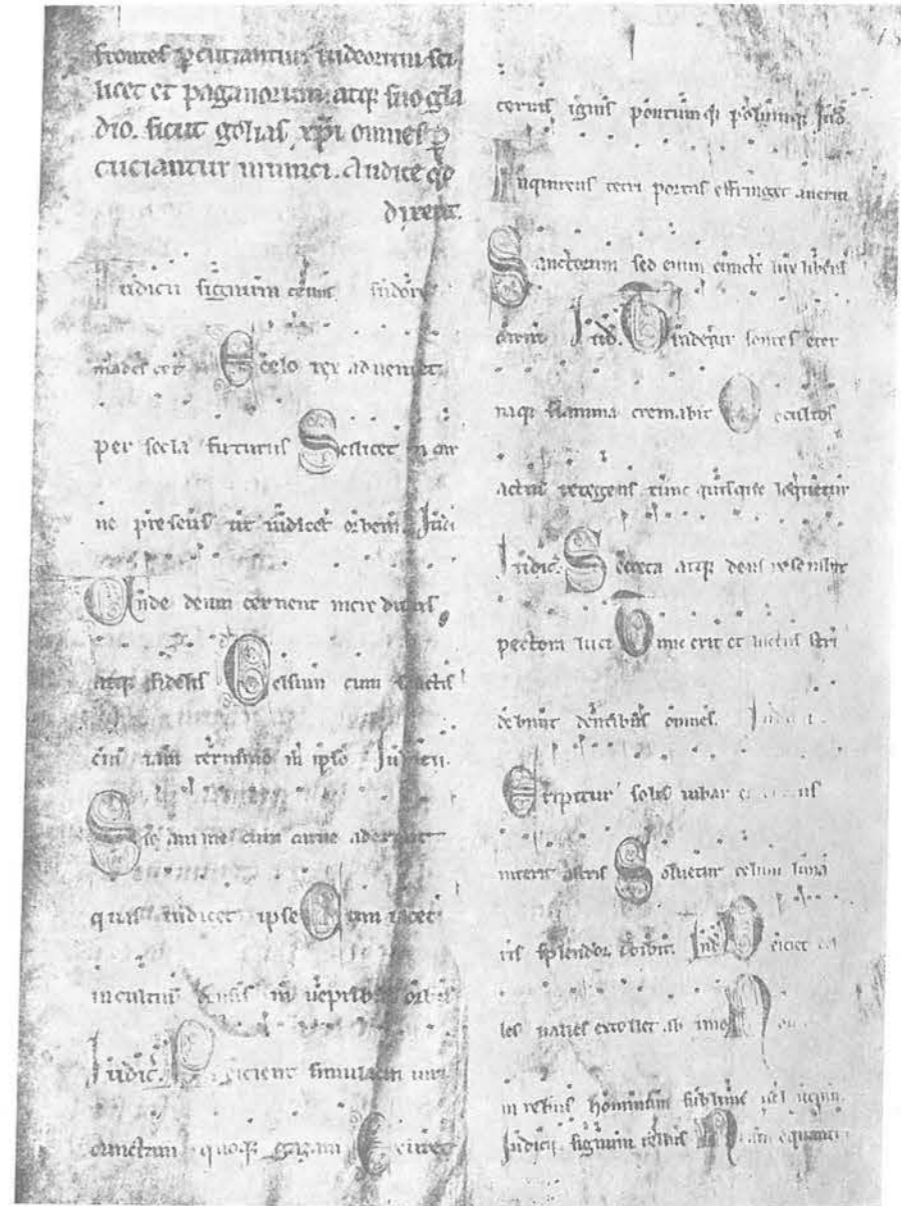 frontes pcutiantur iudeorum sci
licet et paganorum. atq; suo gla
dio. sicut golias xpi omnes p
cuciantur inimici. Audite qd
dixerit.
Iudicii signum tellus sudore
madescet E celo rex adveniet
per secla futurus Scilicet in car
ne presens ut iudicet orbem. Iudi
Unde deum cernent incredulus
atq; fidelis Celsum cum sanctis
evi iam termino in ipso Iudicii.
Sic anime cum carne aderunt
quas iudicet ipse Cum iacet
incultus densis in vepribus orbis
Iudic. Reicient simulacra viri
cunctam quoq; gazam Exuret
terras ignis pontumq; polumq; Iud.
Inquirens tetri portas effringet averni
Sanctorum sed enim cuncte lux libera
carni Iud. Tradetur sontes eter
naq; flamma cremabit Occultos
actus retegens tunc quisque loquetur
Iudic. Secreta atq; deus reserabit
pectora luci Tunc erit et luctus stri
debunt dentibus omnes. Iudicii.
Eripitur solis iubar
interit astris Solvetur celum luna
ris splendor obibit. Iud. Deiciet col
les valles extollet ab imo Non
in rebus hominum sublime vel
Iudicii signum tellus Iam equantur